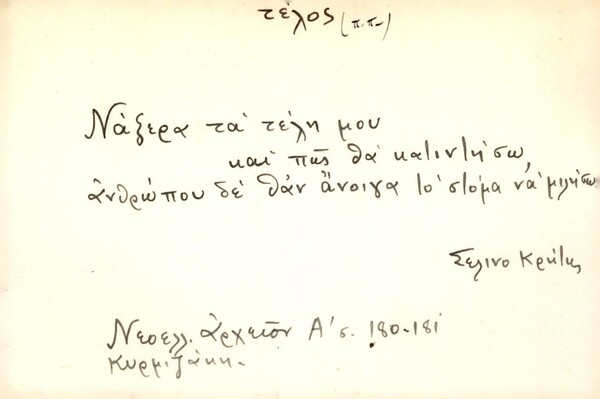 τέλος (π.π.)
Νάξερα τὰ τέλη μου
καὶ πῶς θὰ καταντήσω,
ἀνθρώπου δὲ θἄν ἄνοιγα τὸ στόμα νὰ μιλήσω
Σέλινο Κρήτης
Νεοελλ. Ἀρχεῖον Α' σ. 180-181
Κυρμιζάκη.